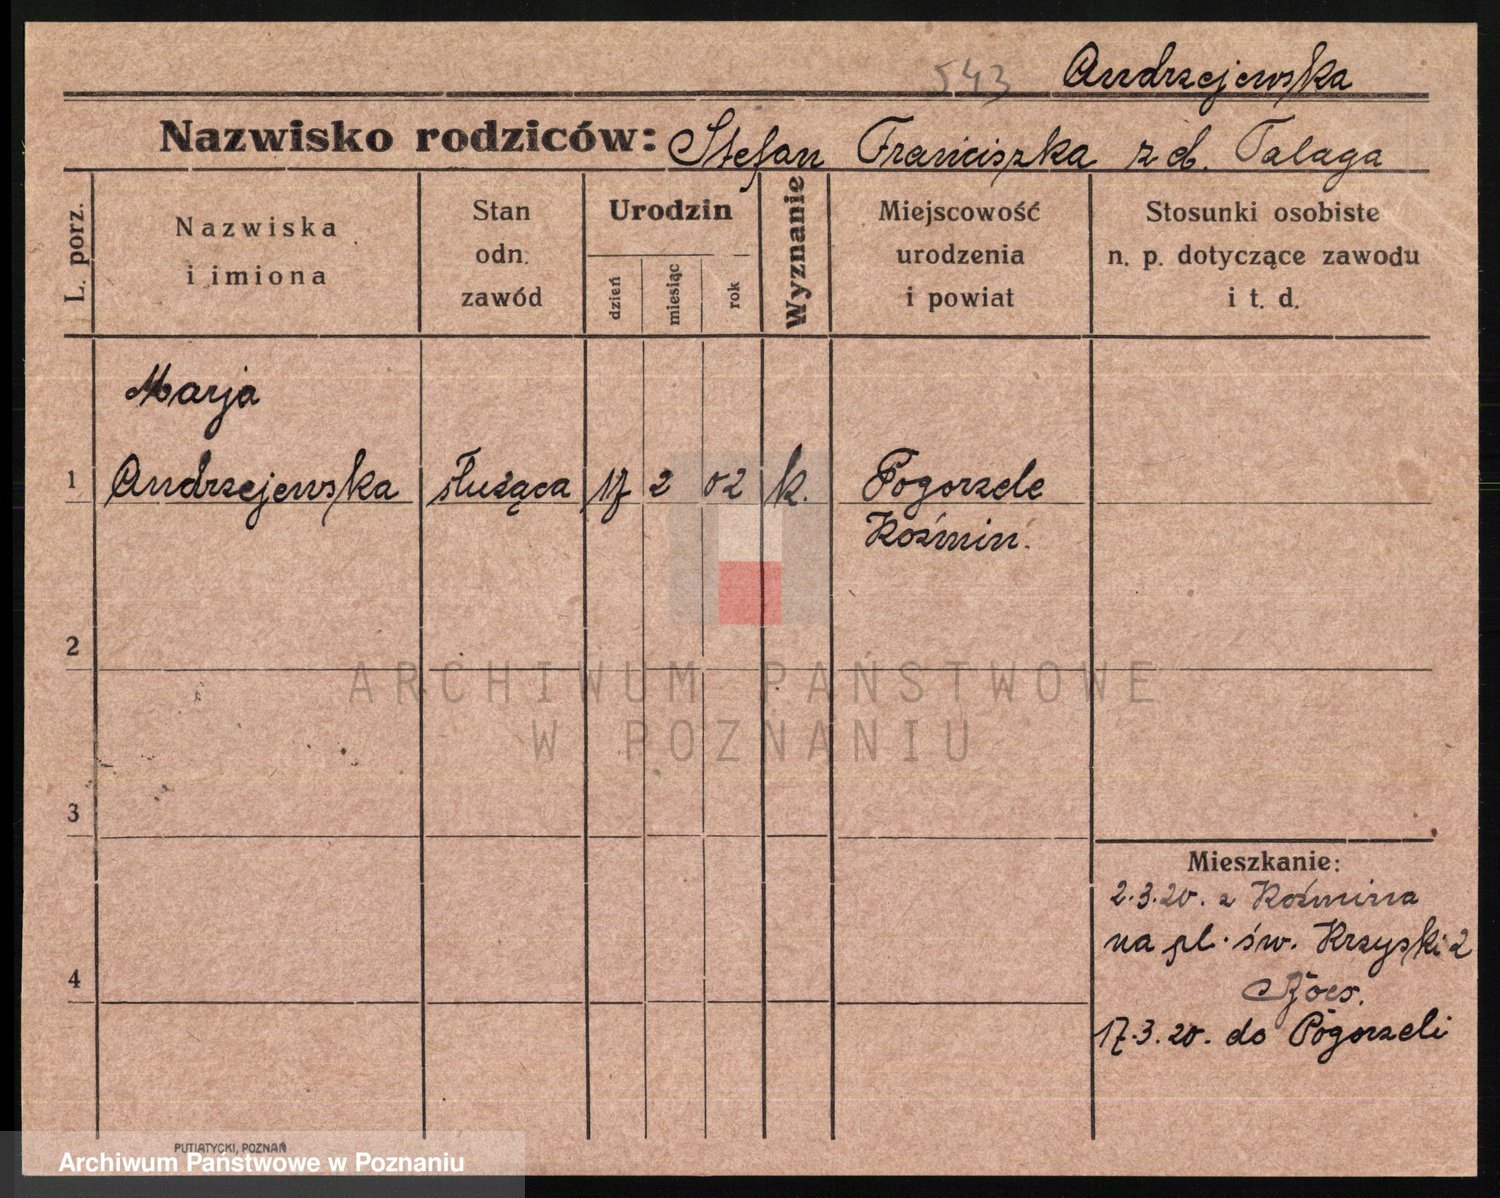 543 Andrzejewska
Nazwisko rodziców: Stefan Franciszka z d. Talaga
L. porz.
Nazwiska
i imiona
Stan
odn.
zawód
Urodzin
dzień
miesiąc
rok
Wyznanie
Miejscowość
urodzenia
i powiat
Stosunki osobiste
n. p. dotyczące zawodu
i t. d.
Marja
1 Andrzejewska służąca 17 2 02 k. Pogorzele
Koźmin.
2
ARCHIWUM PAŃSTWOWE
W POZNANIU
3
Mieszkanie:
2.3.20. z Koźmina
na pl. św. Krzyski 2
4
17.3.20. do Pogorzeli
PUTIATYCKI, POZNAŃ
Archiwum Państwowe w Poznaniu